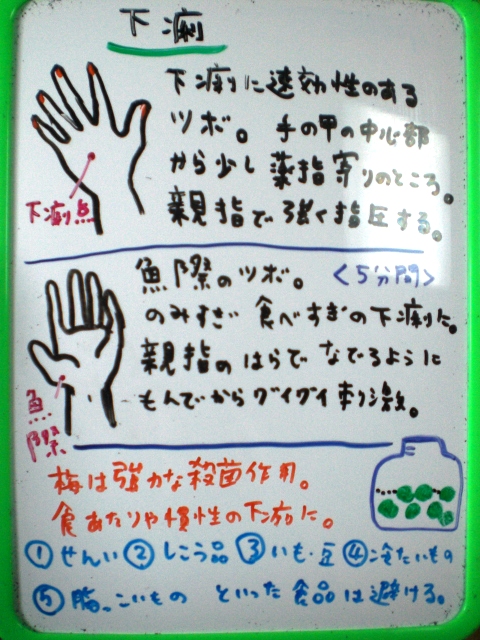 下痢
下痢に速効性のある
ツボ。手の甲の中心部
から少し薬指寄りのところ。
親指で強く指圧する。
下痢点
魚際のツボ。<5分間>
のみすぎ 食べすぎの下痢に。
親指のはらでなでるように
もんでからグイグイ刺激。
魚際
梅は強力な殺菌作用。
食あたりや慢性の下痢に。
①せんい②しこう品③いも・豆④冷たいもの
⑤脂っこいもの といった食品は避ける。